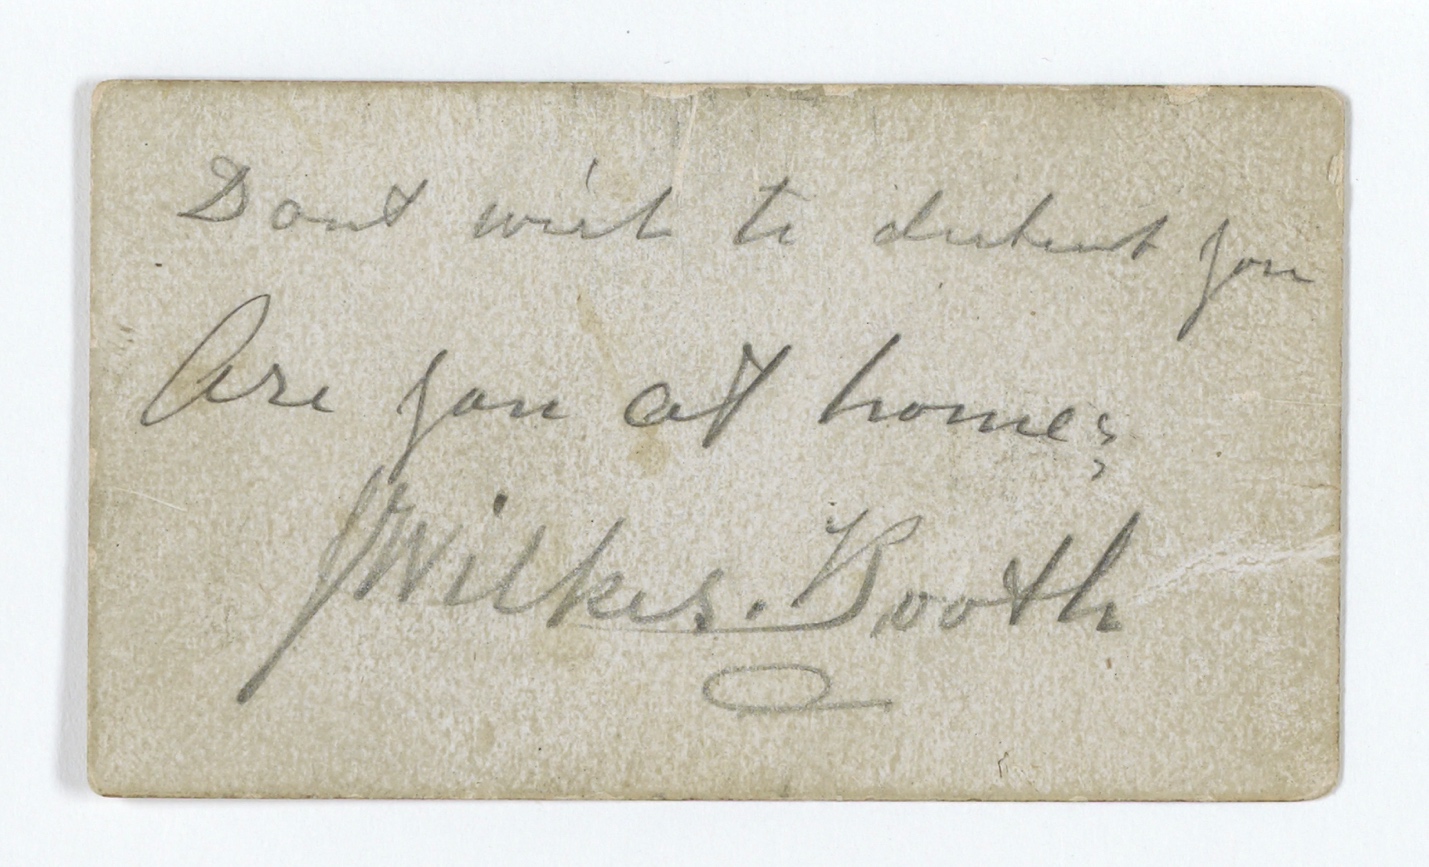 Dont wish to disturb you
Are you at home?
J Wilkes. Booth